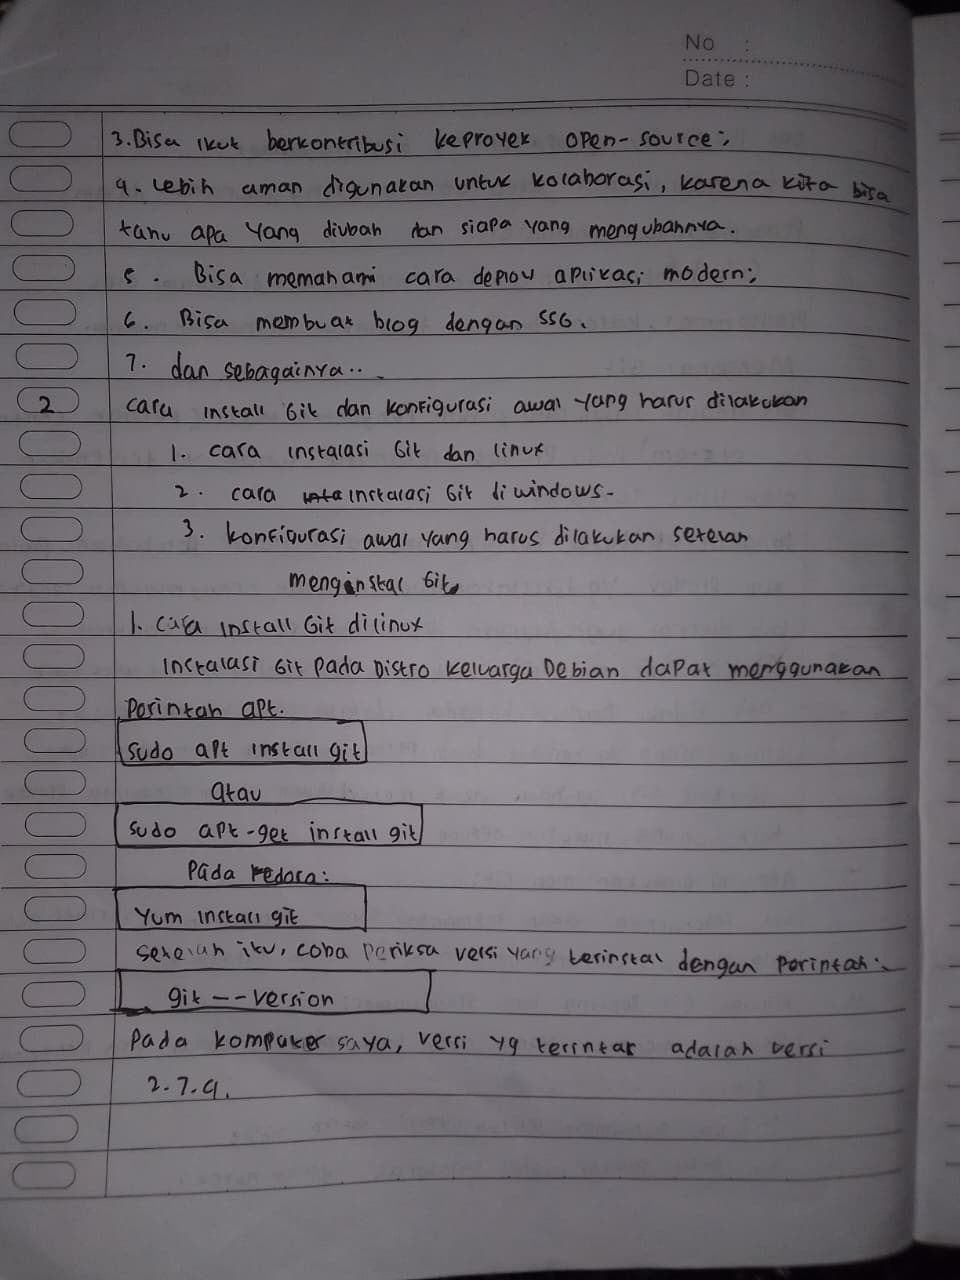 No :
Date :
3. Bisa ikut berkontribusi keproyek open-source;
4. Lebih aman digunakan untuk kolaborasi, karena kita bisa
tahu apa yang diubah dan siapa yang mengubahnya.
5. Bisa memahami cara deploy aplikasi modern;
6. Bisa membuat blog dengan SSG.
7. dan sebagainya...
2 cara install Git dan konfigurasi awal yang harus dilakukan
1. cara instalasi Git dan linux
2. cara instalasi Git di windows.
3. konfigurasi awal yang harus dilakukan setelah
menginstal Git
1. cara install Git dilinux
Instalasi Git pada Distro keluarga Debian dapat menggunakan
Perintah apt.
sudo apt install git
atau
sudo apt-get install git
Pada Fedora:
Yum install git
setelah itu, coba periksa versi yang terinstal dengan Perintah:
git --version
Pada komputer saya, versi yg terintal adalah versi
2.7.4.